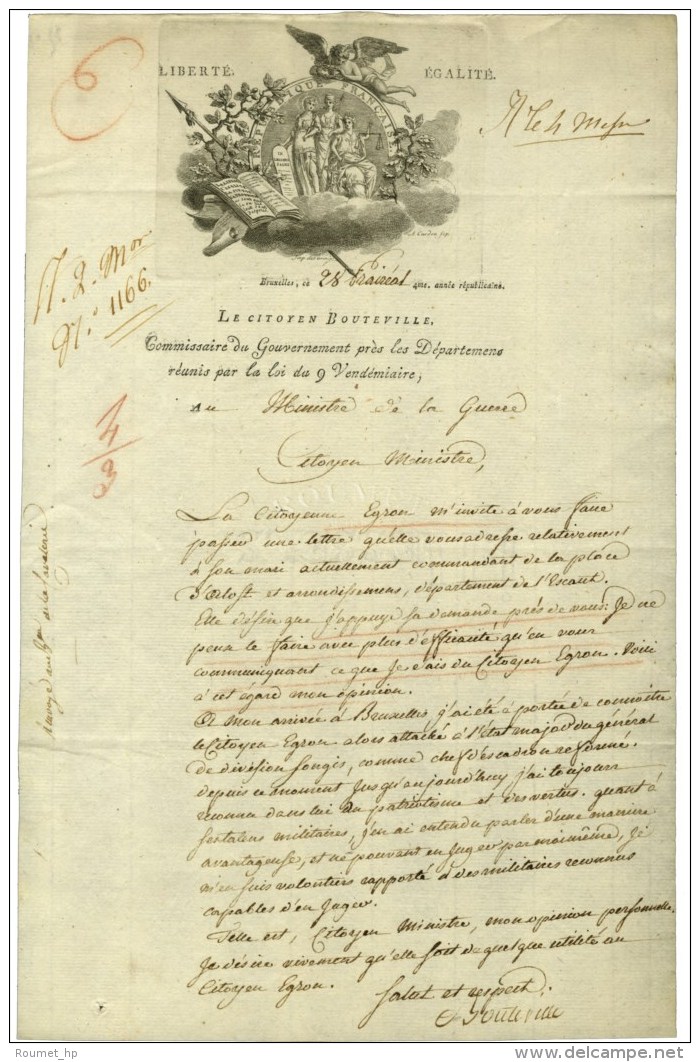 LIBERTÉ. ÉGALITÉ.
RÉPUBLIQUE FRANÇAISE
A. Cardon fcp.
Bruxelles, ce 28 Prairéal 4me. année républicaine.
N.º 1166.
LE CITOYEN BOUTEVILLE,
Commissaire du Gouvernement près les Départemens
réunis par la loi du 9 Vendémiaire,
4/3
Au Ministre de la Guerre
Citoyen Ministre,
La Citoyenne Egron m'invite à vous faire
passer une lettre qu'elle vous adresse relativement
à son mari actuellement commandant de la place
d'Alost et arrondissement, département de l'Escaut.
Elle désire que j'appuye sa demande près de vous: Je ne
peux le faire avec plus d'efficacité qu'en vous
communiquant ce que Je sais du Citoyen Egron. Voici
à cet égard mon opinion.
A mon arrivée à Bruxelles, j'ai été à portée de connoitre
le Citoyen Egron alors attaché à l'état major du général
de division Songis, comme chef d'escadron reformé.
depuis ce moment Jusqu'aujourd'huy j'ai toujours
reconnu dans lui du patriotisme et des vertus. quant à
ses talens militaires, j'en ai entendu parler d'une manière
avantageuse, et ne pouvant en Juger par moi même, je
m'en suis volontiers rapporté à des militaires reconnus
capables d'en Juger.
Telle est, Citoyen Ministre, mon opinion personnelle.
Je désire vivement qu'elle soit de quelque utilité au
Citoyen Egron.
Salut et respect.
Bouteville
Roumet_hp
DELCAMPE.NET